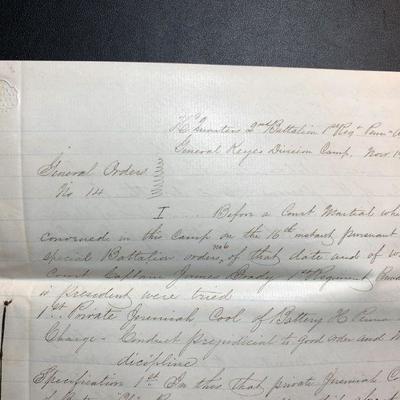 Hd Quarters 2nd Battalion 1st Regt Penn
General Keyes Division Camp, Nov. 1
General Orders
No 14
I .... Before a Court Martial whe
convened in this Camp on the 16th instant pursuant
special Battalion orders, no 6 of that date and of w
Court Captain James Brady 1st Regiment Penna
is president were tried
1st Private Jeremiah Cool of Battery H Penna
Charge - Conduct prejudicial to Good order and M
dicipline
Specification 1st In this that private Jeremiah Co